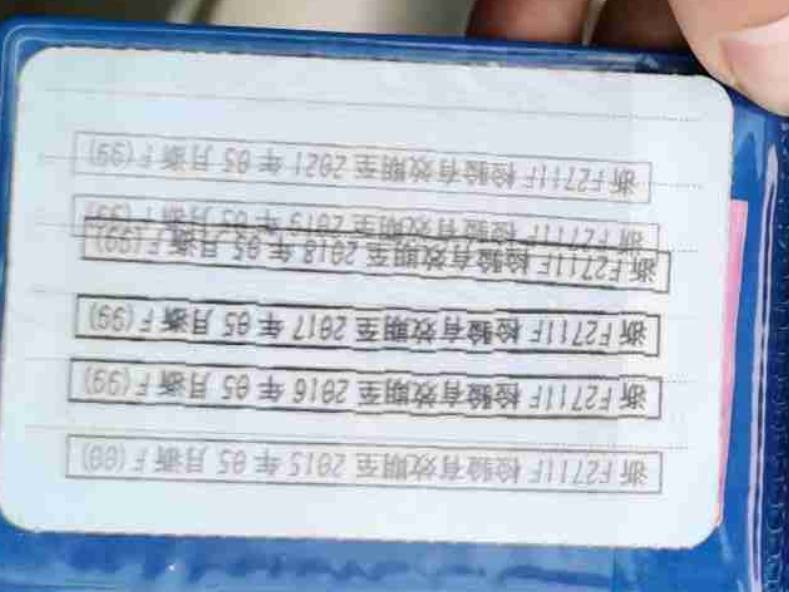 浙F2711F 检验有效期至 2015 年 05 月浙 F (00)
浙F2711F 检验有效期至 2016 年 05 月浙 F (99)
浙F2711F 检验有效期至 2017 年 05 月浙 F (99)
浙F2711F 检验有效期至 2018 年 05 月浙 F (99)
浙F2711F 检验有效期至 2019 年 05 月浙 F (99)
浙F2711F 检验有效期至 2021 年 05 月浙 F (99)